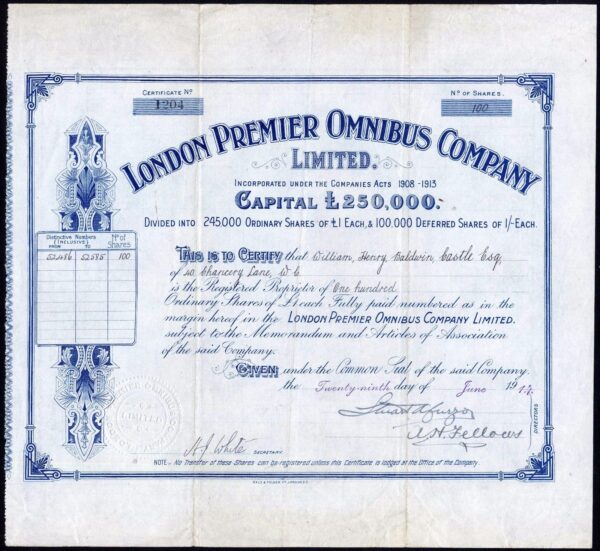 CERTIFICATE Nº
1204
Nº OF SHARES.
100
LONDON PREMIER OMNIBUS COMPANY
LIMITED.
INCORPORATED UNDER THE COMPANIES ACTS 1908-1913
CAPITAL £250,000.
DIVIDED INTO 245000 ORDINARY SHARES OF £1 EACH, & 100,000 DEFERRED SHARES OF 1/- EACH.
Distinctive Numbers (INCLUSIVE) Nº of Shares
FROM TO
52486 52585 100
THIS IS TO CERTIFY that William, Henry Baldwin, Castle Esq
of Chancery Lane, W.C.
is the Registered Proprietor of One hundred
Ordinary Shares of £1 each Fully paid numbered as in the
margin hereof in the LONDON PREMIER OMNIBUS COMPANY LIMITED.
subject to the Memorandum and Articles of Association
of the said Company.
GIVEN under the Common Seal of the said Company.
the Twenty-ninth day of June 1914.
A. H. Fellows
DIRECTORS
H J White SECRETARY
NOTE.- No Transfer of these Shares can be registered unless this Certificate is lodged at the Office of the Company.